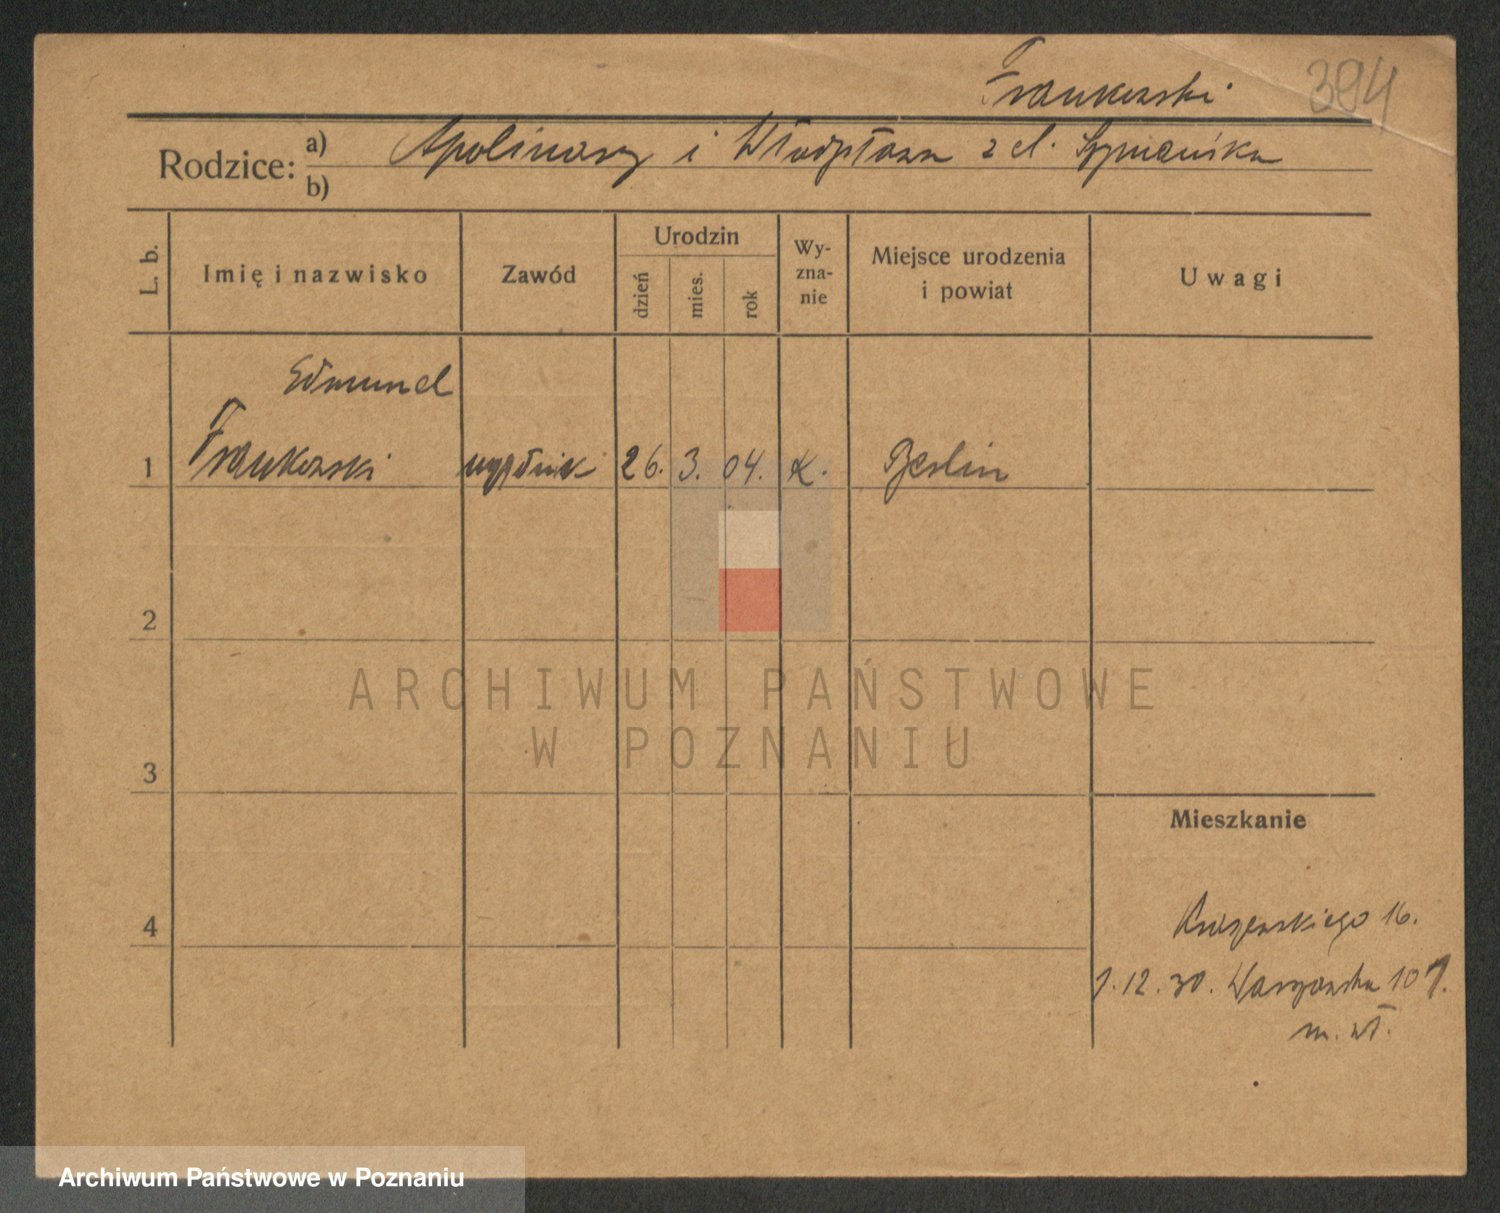 Frankowski 394
Rodzice: a) Apolinary i Władysława z d. Szymańska
b)
L. b. Imię i nazwisko Zawód Urodzin dzień mies. rok Wy-zna-nie Miejsce urodzenia i powiat Uwagi
Edmund
1 Frankowski 26. 3. 04. k. Berlin
2
3
Mieszkanie
4
16.
1.12.30. Warszawska 107.
m. wł.
ARCHIWUM PAŃSTWOWE
W POZNANIU
Archiwum Państwowe w Poznaniu